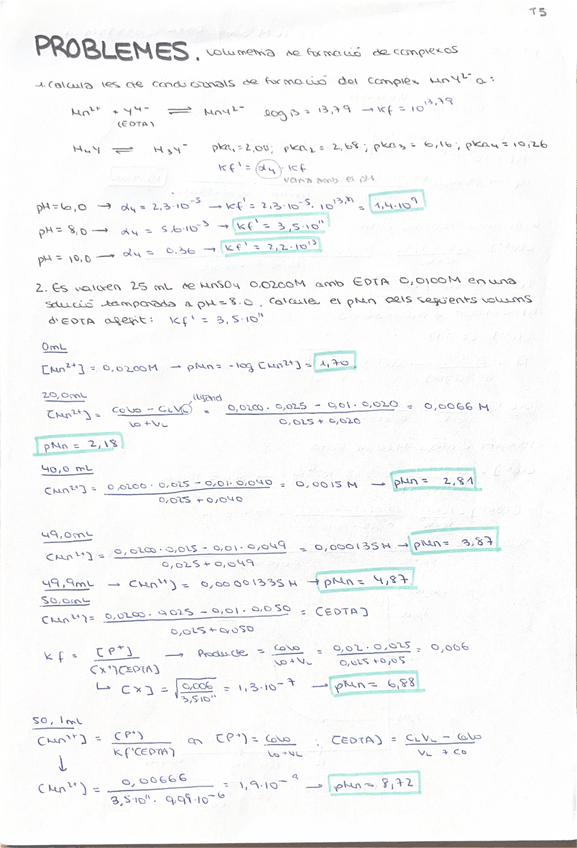 T5
PROBLEMES. volumetria de formació de complexos
1. Calcula les cte condicionals de formació del complex MnY²⁻ a:
Mn²⁺ + Y⁴⁻ ⇌ MnY²⁻ log β = 13,79 → Kf = 10^13,79
(EDTA)
H₄Y ⇌ H₃Y⁻ pKa₁ = 2,00; pKa₂ = 2,68; pKa₃ = 6,16; pKa₄ = 10,26
Kf' = α₄ · Kf
varia amb el pH
pH = 6,0 → α₄ = 2,3·10⁻⁵ → Kf' = 2,3·10⁻⁵ · 10^13,79 = 1,4·10⁹
pH = 8,0 → α₄ = 5.6·10⁻³ → Kf' = 3,5·10¹¹
pH = 10,0 → α₄ = 0.36 → Kf' = 2,2·10¹³
2. Es valoren 25 mL de MnSO₄ 0,0200M amb EDTA 0,0100M en una
solució tamponada a pH = 8.0. Calcula el pMn dels següents volums
d'EDTA afegit: Kf' = 3,5·10¹¹
0mL
[Mn²⁺] = 0,0200M → pMn = -log [Mn²⁺] = 1,70
20,0mL
[Mn²⁺] = (C₀V₀ - C_LV_L) / (V₀ + V_L) = (0,0200 · 0,025 - 0,01 · 0,020) / (0,025 + 0,020) = 0,0066 M
lligand
pMn = 2,18
40,0 mL
[Mn²⁺] = (0,0200 · 0,025 - 0,01 · 0,040) / (0,025 + 0,040) = 0,0015 M → pMn = 2,81
49,0mL
[Mn²⁺] = (0,0200 · 0,025 - 0,01 · 0,049) / (0,025 + 0,049) = 0,000135M → pMn = 3,87
49,9mL → [Mn²⁺] = 0,00001335M → pMn = 4,87
50,0mL
[Mn²⁺] = (0,0200 · 0,025 - 0,01 · 0,050) / (0,025 + 0,050) = [EDTA]
Kf = [P⁺] / [X⁺][EDTA] → Producte = C₀V₀ / (V₀ + V_L) = (0,02 · 0,025) / (0,025 + 0,05) = 0,006
↳ [X] = √(0,006 / 3,5·10¹¹) = 1,3·10⁻⁷ → pMn = 6,88
50,1mL
[Mn²⁺] = [P⁺] / Kf'[EDTA] on [P⁺] = C₀V₀ / (V₀ + V_L) ; [EDTA] = (C_LV_L - C₀V₀) / (V_L + C₀)
↓
[Mn²⁺] = 0,00666 / (3,5·10¹¹ · 9,99·10⁻⁶) = 1,9·10⁻⁹ → pMn = 8,72